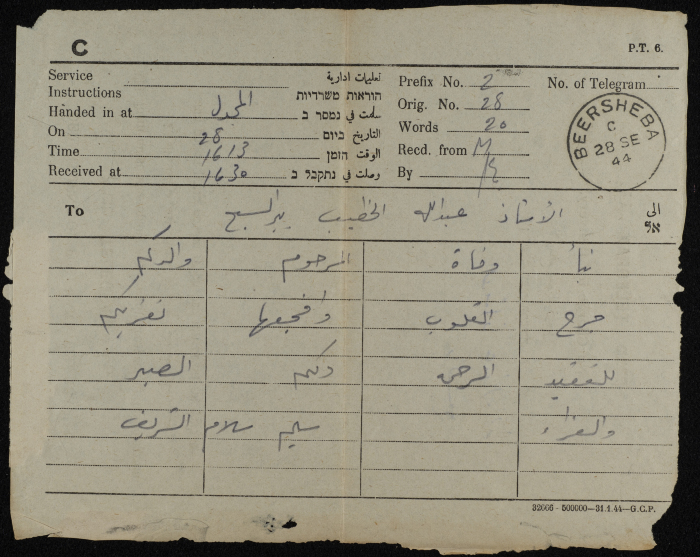 C
P.T. 6.
Service تعليمات ادارية
Instructions הוראות משרדיות
Handed in at المجدل سلمت في נמסר ב
On 28 التاريخ ביום
Time 1613 الوقت הזמן
Received at 1630 وصلت في נתקבל ב
Prefix No. 2
Orig. No. 28
Words 20
Recd. from M
By
No. of Telegram
BEERSHEBA
C
28 SE
44
To الاستاذ عبدالله الخطيب بير السبع الى
אל
نبأ وفاة المرحوم والدكم
جرح القلوب وافجعها نعزيكم
للفقيد الرحمة ولكم الصبر
والعزاء سليم سلام الشريف
32666 - 500000—31.1.44—G.C.P.